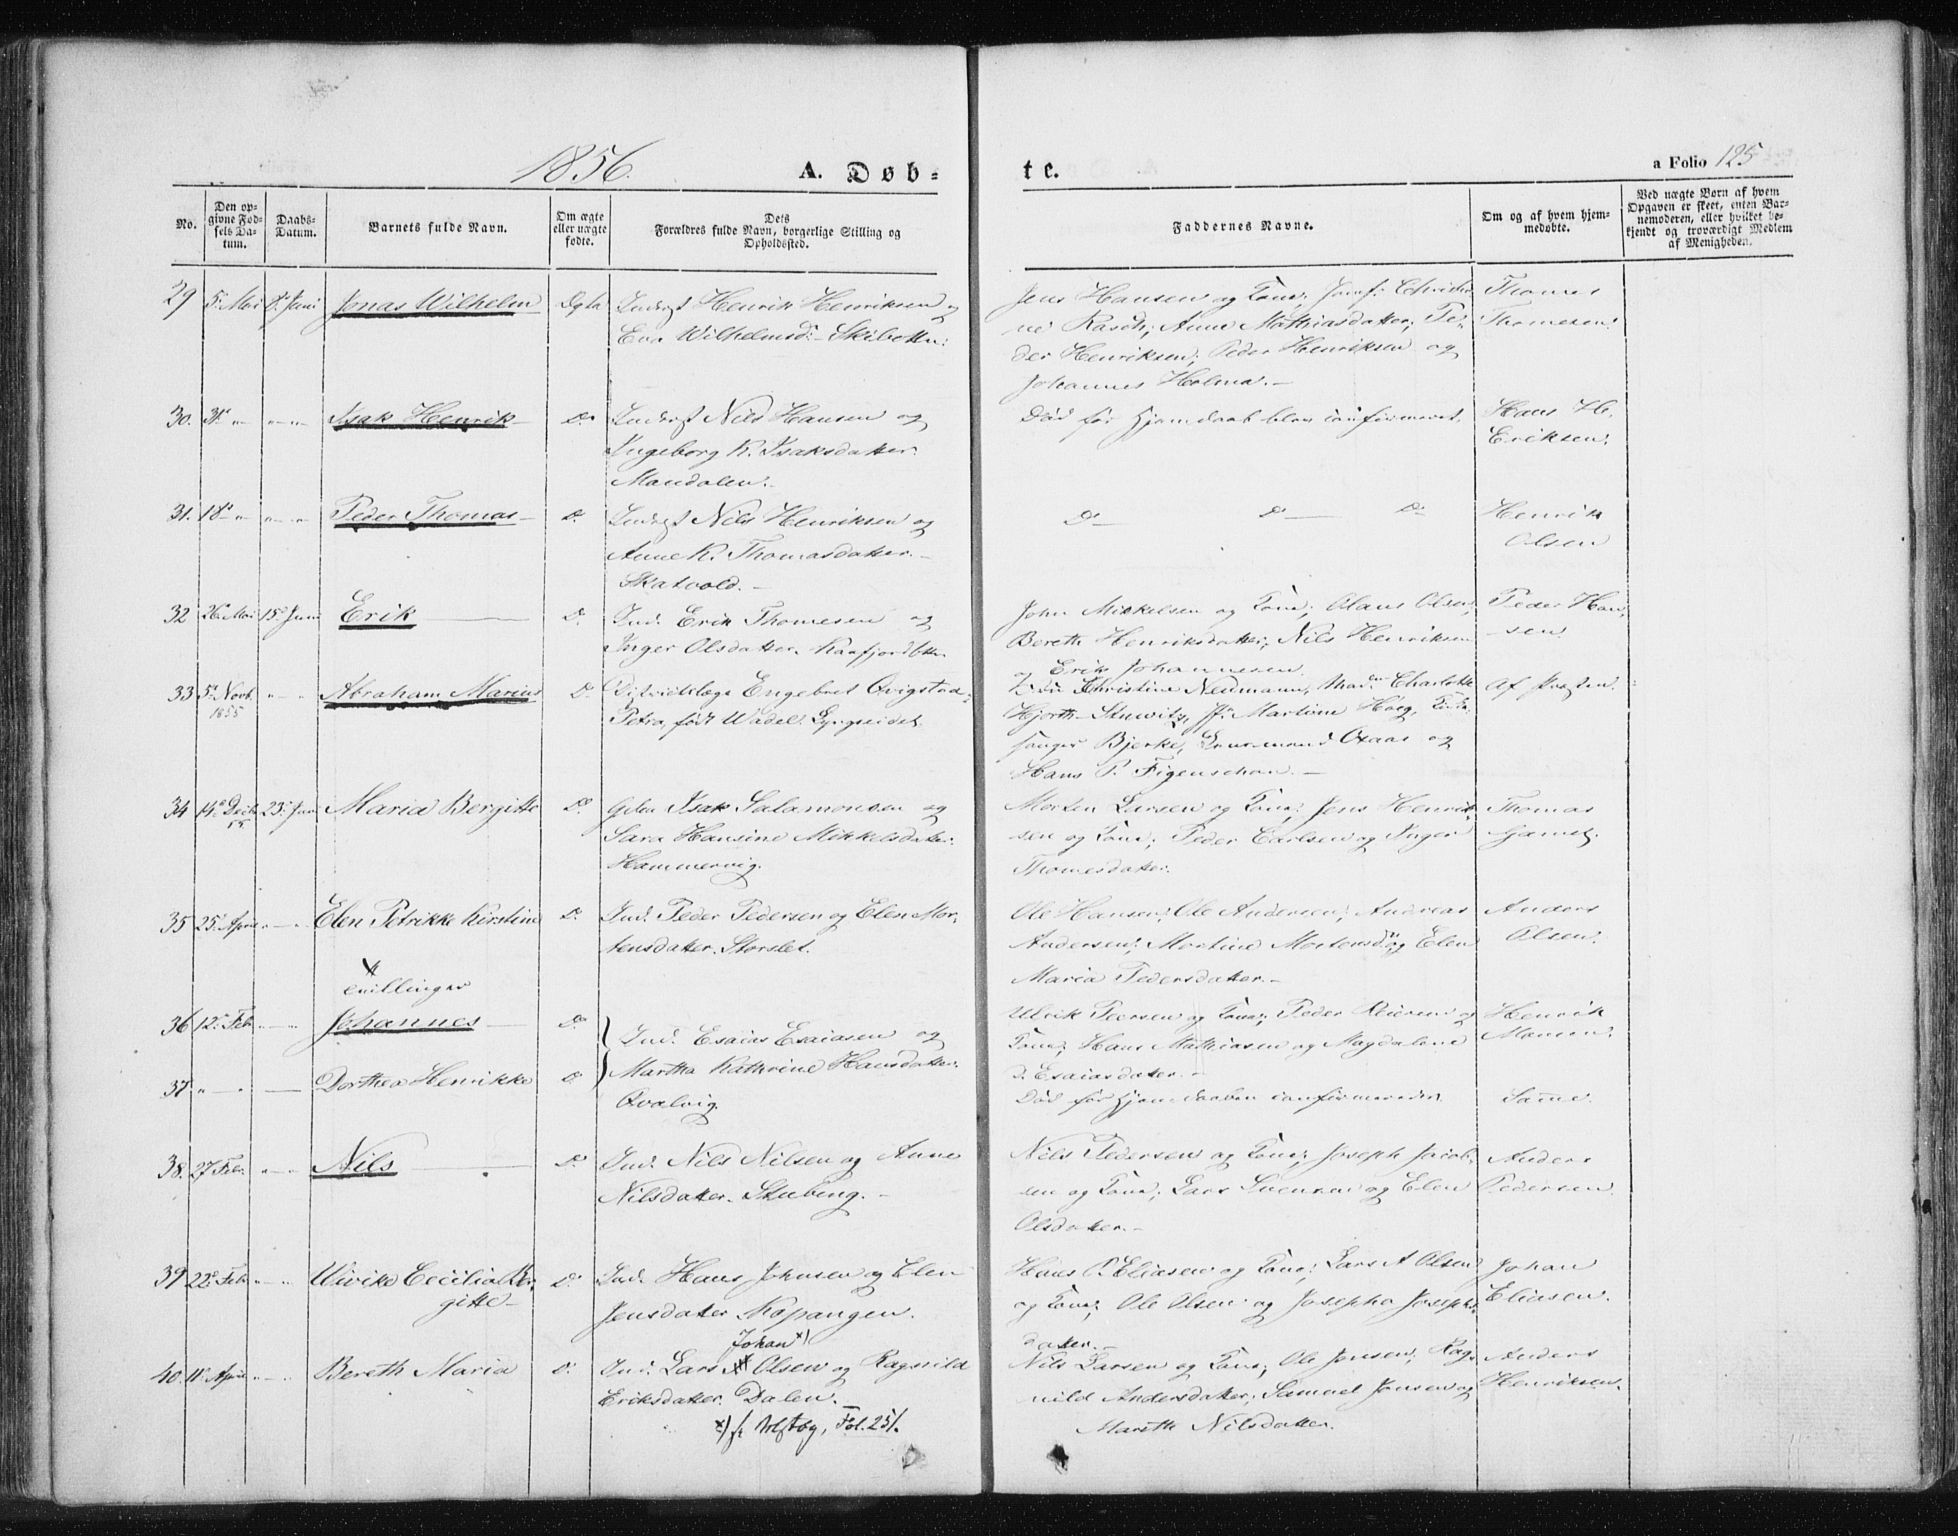 1856.
A. Døb=
te.
a Folio 125
No.
Den op-
givne Fød-
sels Da-
tum.
Daabs-
Datum.
Barnets fulde Navn.
Om ægte
eller uægte
fødte.
Dets
Forældres fulde Navn, borgerlige Stilling og
Opholdssted.
Faddernes Navne.
Om og af hvem hjem-
medøbte.
Ved uægte Børn af hvem
Opgaven er skeet, enten Bar-
nemoderen, eller hvilket be-
kjendt og troværdigt Medlem
af Menigheden.
29 5. Mai Juni Jonas Wilhelm Henrik Henriksen og
Eva Wilhelmsd: Skibotten.
Jens Hansen og Kone; Christi-
ne Rasch; Anne Mathiasdatter; Pe-
der Henriksen; Peder Henriksen og
Johannes Holma.
Thomas
Thomesen.
30. 31. " " " Isak Henrik Do Nils Hansen og
Ingeborg K. Isaksdatter
Mandalen.
Død før Hjemdaab blev confirmeret.
Hans H.
Eriksen.
31. 18 " " " Peder Thomas Do Nils Henriksen og
Anne K. Thomasdatter
Skatvold.
Do Do Do
Henrik
Olsen
32 26 Mai 15 Juni Erik Do Ind. Erik Thomesen og
Inger Olsdatter. Kaafjordbtn.
John Mikkelsen og Kone; Olaus Olsen;
Bereth Henriksdatter; Nils Henriksen
og Erik Johannesen
Peder Han-
sen.
33 5 Novb. 1855 " " Abraham Marius Do Districtslæge Engebret Qvigstad
Petra, født Wadel. Lyngseidet.
Christine Neumann, Charlotte
Hjorth Stuwitz, Martine Høeg,
Bjerke, Oxaas og
Hans P. Figenschou.
Af Præsten.
34 14 Decb. 55 23 Juni Maria Bergitte Do Isak Salamonsen og
Sara Hansine Mikkelsdatter.
Hammervig.
Morten Larsen og Kone; Jens Henrik-
sen og Kone; Peder Carlsen og Inger
Thomesdatter.
Thomas
35 25 April " " Elen Petrikke Kirstine Do Ind. Peder Pedersen og Elen Mor-
tensdatter. Storslet.
Ole Hansen; Ole Andersen; Andreas
Andersen; Martine Mortensdtr og Elen
Maria Pedersdatter.
Anders
Olsen.
x
Tvillinger
36 12 Feb " " Johannes Do Ind. Esaias Esaiasen og
Martha Kathrine Hansdatter.
Qvalvig.
Ulrik Peersen og Kone; Peder og
Kone; Hans Mathiasen og Magdalena
D. Esaiasdatter.
Henrik
Monsen.
37 " " Dorthea Henrikke Do
Død før Hjemdaaben confirmeredes.
Samme.
38. 27 Feb. " " Nils Do Ind. Nils Nilsen og Anne
Nilsdatter. Stubeng.
Nils Pedersen og Kone; Joseph Jacob-
sen og Kone; Lars Svensen og Elen
Olsdatter.
Anders
Pedersen.
39 22 Feb " " Ulrika Cecilia Ber-
gitte Do Ind. Hans Johnsen og Elen
Jensdatter Kopangen.
Hans P. Eliasen og Kone; Lars A Olsen
og Kone; Ole Olsen og Josepha Josephs-
datter.
Johan
Eliasen.
40. 11 April " " Bereth Maria Do Ind. Lars Johan x) Olsen og Ragnild
Eriksdatter. Dalen.
Nils Larsen og Kone; Ole Jensen; Rag-
nild Andersdatter; Samuel Jensen og
Marith Nilsdatter.
Anders
Henriksen.
x) Fol. 251.